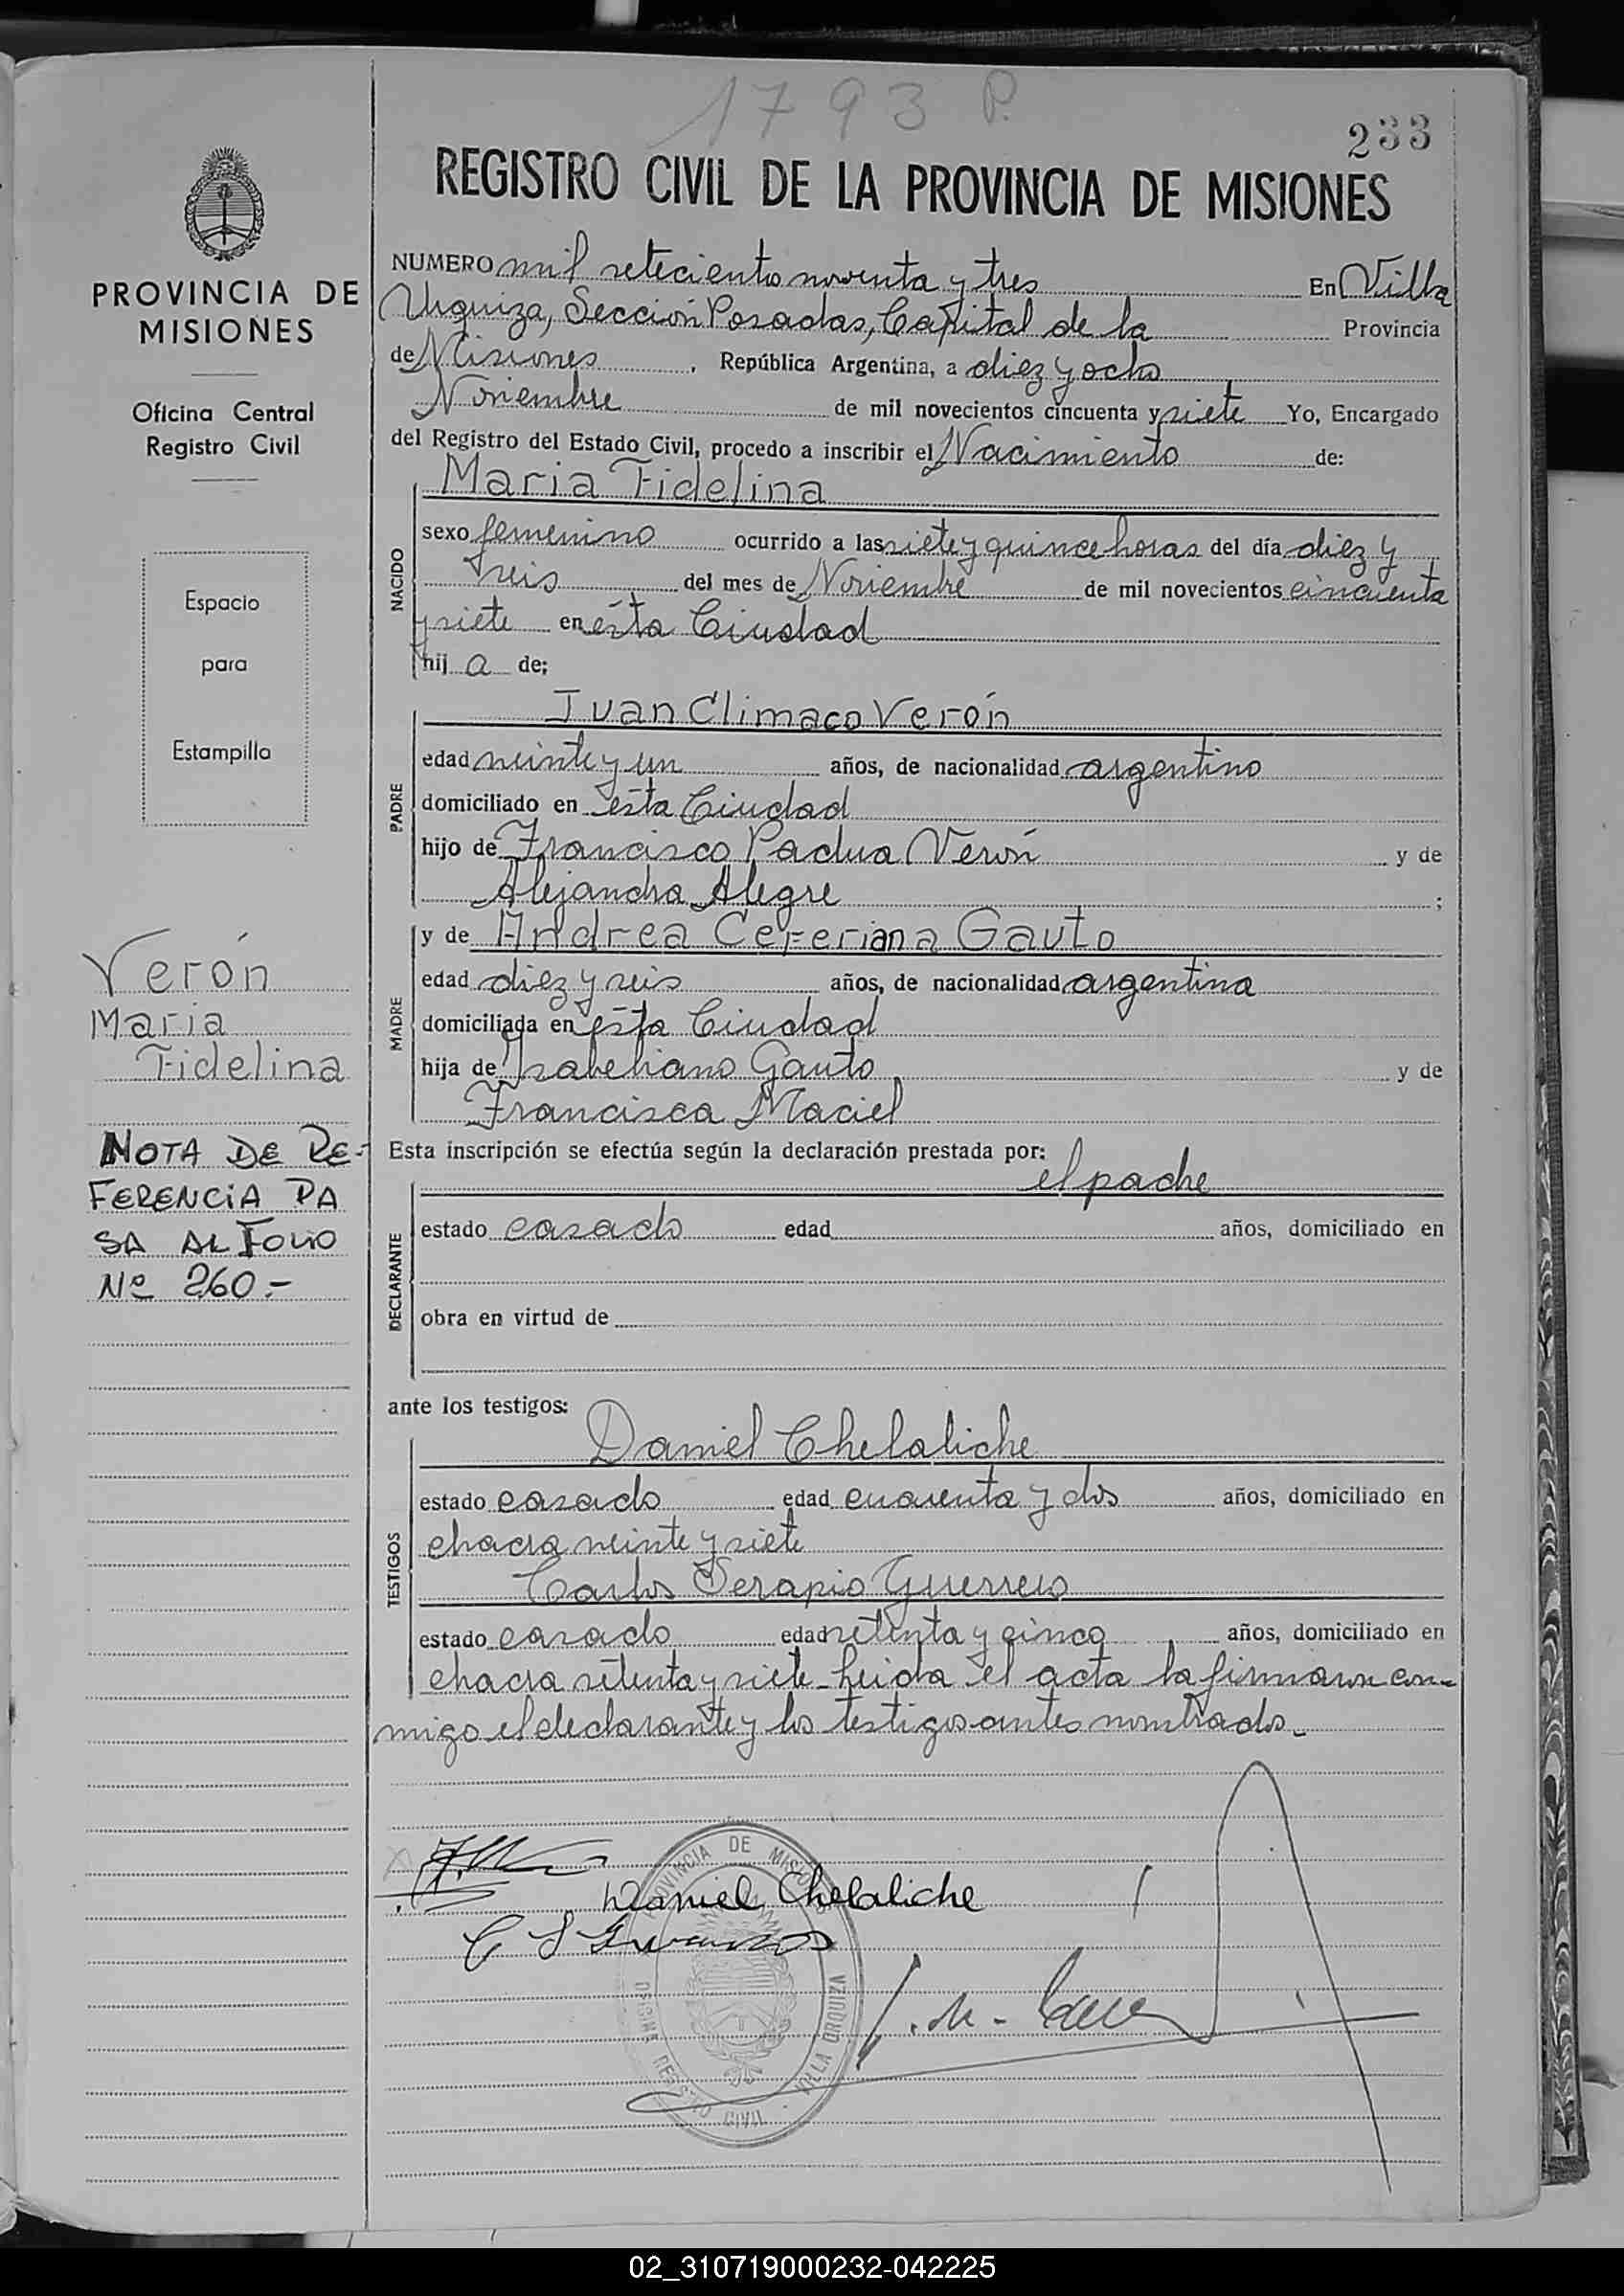 1793 P.
233
REGISTRO CIVIL DE LA PROVINCIA DE MISIONES
PROVINCIA DE
MISIONES
Oficina Central
Registro Civil
Espacio
para
Estampilla
Verón
Maria
Fidelina
NOTA DE RE-
FERENCIA PA
SA AL FOLIO
Nº 260.-
NUMERO mil seteciento noventa y tres En Villa
Urquiza, Sección Posadas, Capital de la Provincia
de Misiones, República Argentina, a diez y ocho
Noviembre de mil novecientos cincuenta y siete Yo, Encargado
del Registro del Estado Civil, procedo a inscribir el Nacimiento de:
Maria Fidelina
NACIDO
sexo femenino ocurrido a las siete y quince horas del día diez y
seis del mes de Noviembre de mil novecientos cincuenta
y siete en ésta Ciudad
hij a de;
Juan Climaco Verón
PADRE
edad veinte y un años, de nacionalidad argentino
domiciliado en ésta Ciudad
hijo de Francisco Padua Verón y de
Alejandra Alegre ;
y de Andrea Ceferiana Gauto
MADRE
edad diez y seis años, de nacionalidad argentina
domiciliada en ésta Ciudad
hija de Isabeliano Gauto y de
Francisca Maciel
Esta inscripción se efectúa según la declaración prestada por:
el padre
DECLARANTE
estado casado edad años, domiciliado en
obra en virtud de
ante los testigos:
Daniel Chelaliche
TESTIGOS
estado casado edad cuarenta y dos años, domiciliado en
chacra veinte y siete
Carlos Serapio Guerrero
estado casado edad setenta y cinco años, domiciliado en
chacra setenta y siete - Leida el acta la firmaron con-
migo el declarante y los testigos antes nombrados.
Daniel Chelaliche
C S Guerrero
PROVINCIA DE MISIONES
REGISTRO CIVIL - VILLA URQUIZA
02_310719000232-042225